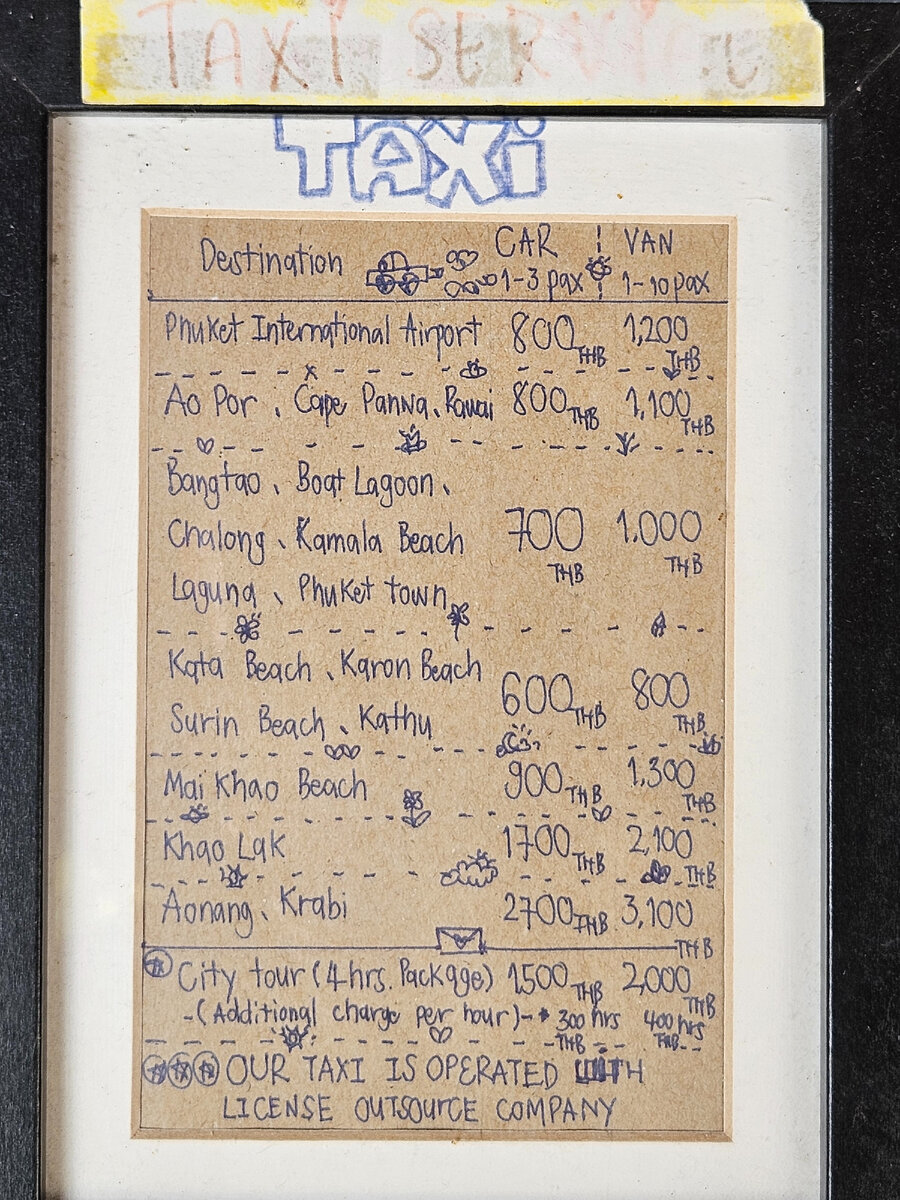 TAXI SERVICE
TAXi
Destination CAR VAN
1-3 pax 1-10 pax
Phuket International Airport 800 THB 1,200 THB
Ao Por, Cape Panwa, Rawai 800 THB 1,100 THB
Bangtao, Boat Lagoon,
Chalong, Kamala Beach 700 THB 1,000 THB
Laguna, Phuket town
Kata Beach, Karon Beach
600 THB 800 THB
Surin Beach, Kathu
Mai Khao Beach 900 THB 1,300 THB
Khao Lak 1700 THB 2,100 THB
Aonang, Krabi 2700 THB 3,100 THB
City tour (4 hrs. Package) 1,500 THB 2,000 THB
-(Additional charge per hour)- 300 hrs THB 400 hrs THB
OUR TAXI IS OPERATED WITH
LICENSE OUTSOURCE COMPANY